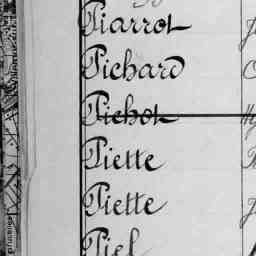 Piarrot
Pichard
Pichot
Piette
Piette
Piel